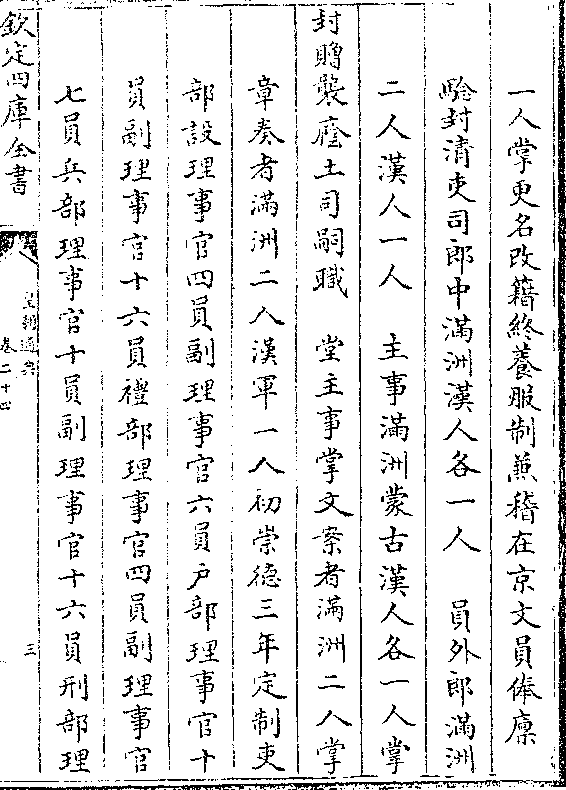 一人掌更名改籍終養服制兼稽在京文員俸廩
驗封清吏司郎中滿洲漢人各一人　員外郎滿洲
二人漢人一人　主事滿洲蒙古漢人各一人掌
封贈襲廕土司嗣職　堂主事掌文案者滿洲二人掌
章奏者滿洲二人漢軍一人初崇德三年定制吏
部設理事官四員副理事官六員户部理事官十
員副理事官十六員禮部理事官四員副理事官
七員兵部理事官十員副理事官十六員刑部理
欽定四庫全書
皇朝通典
卷二十四
三